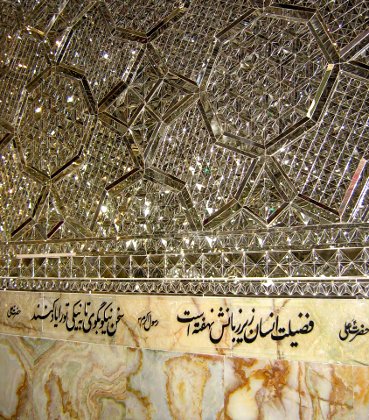 حضرت علی فضیلت انسان زیر زبانش نهفته است رسول اکرم سخن نیکو بگوی تا بنیکی تو را یاد کنند حضرت